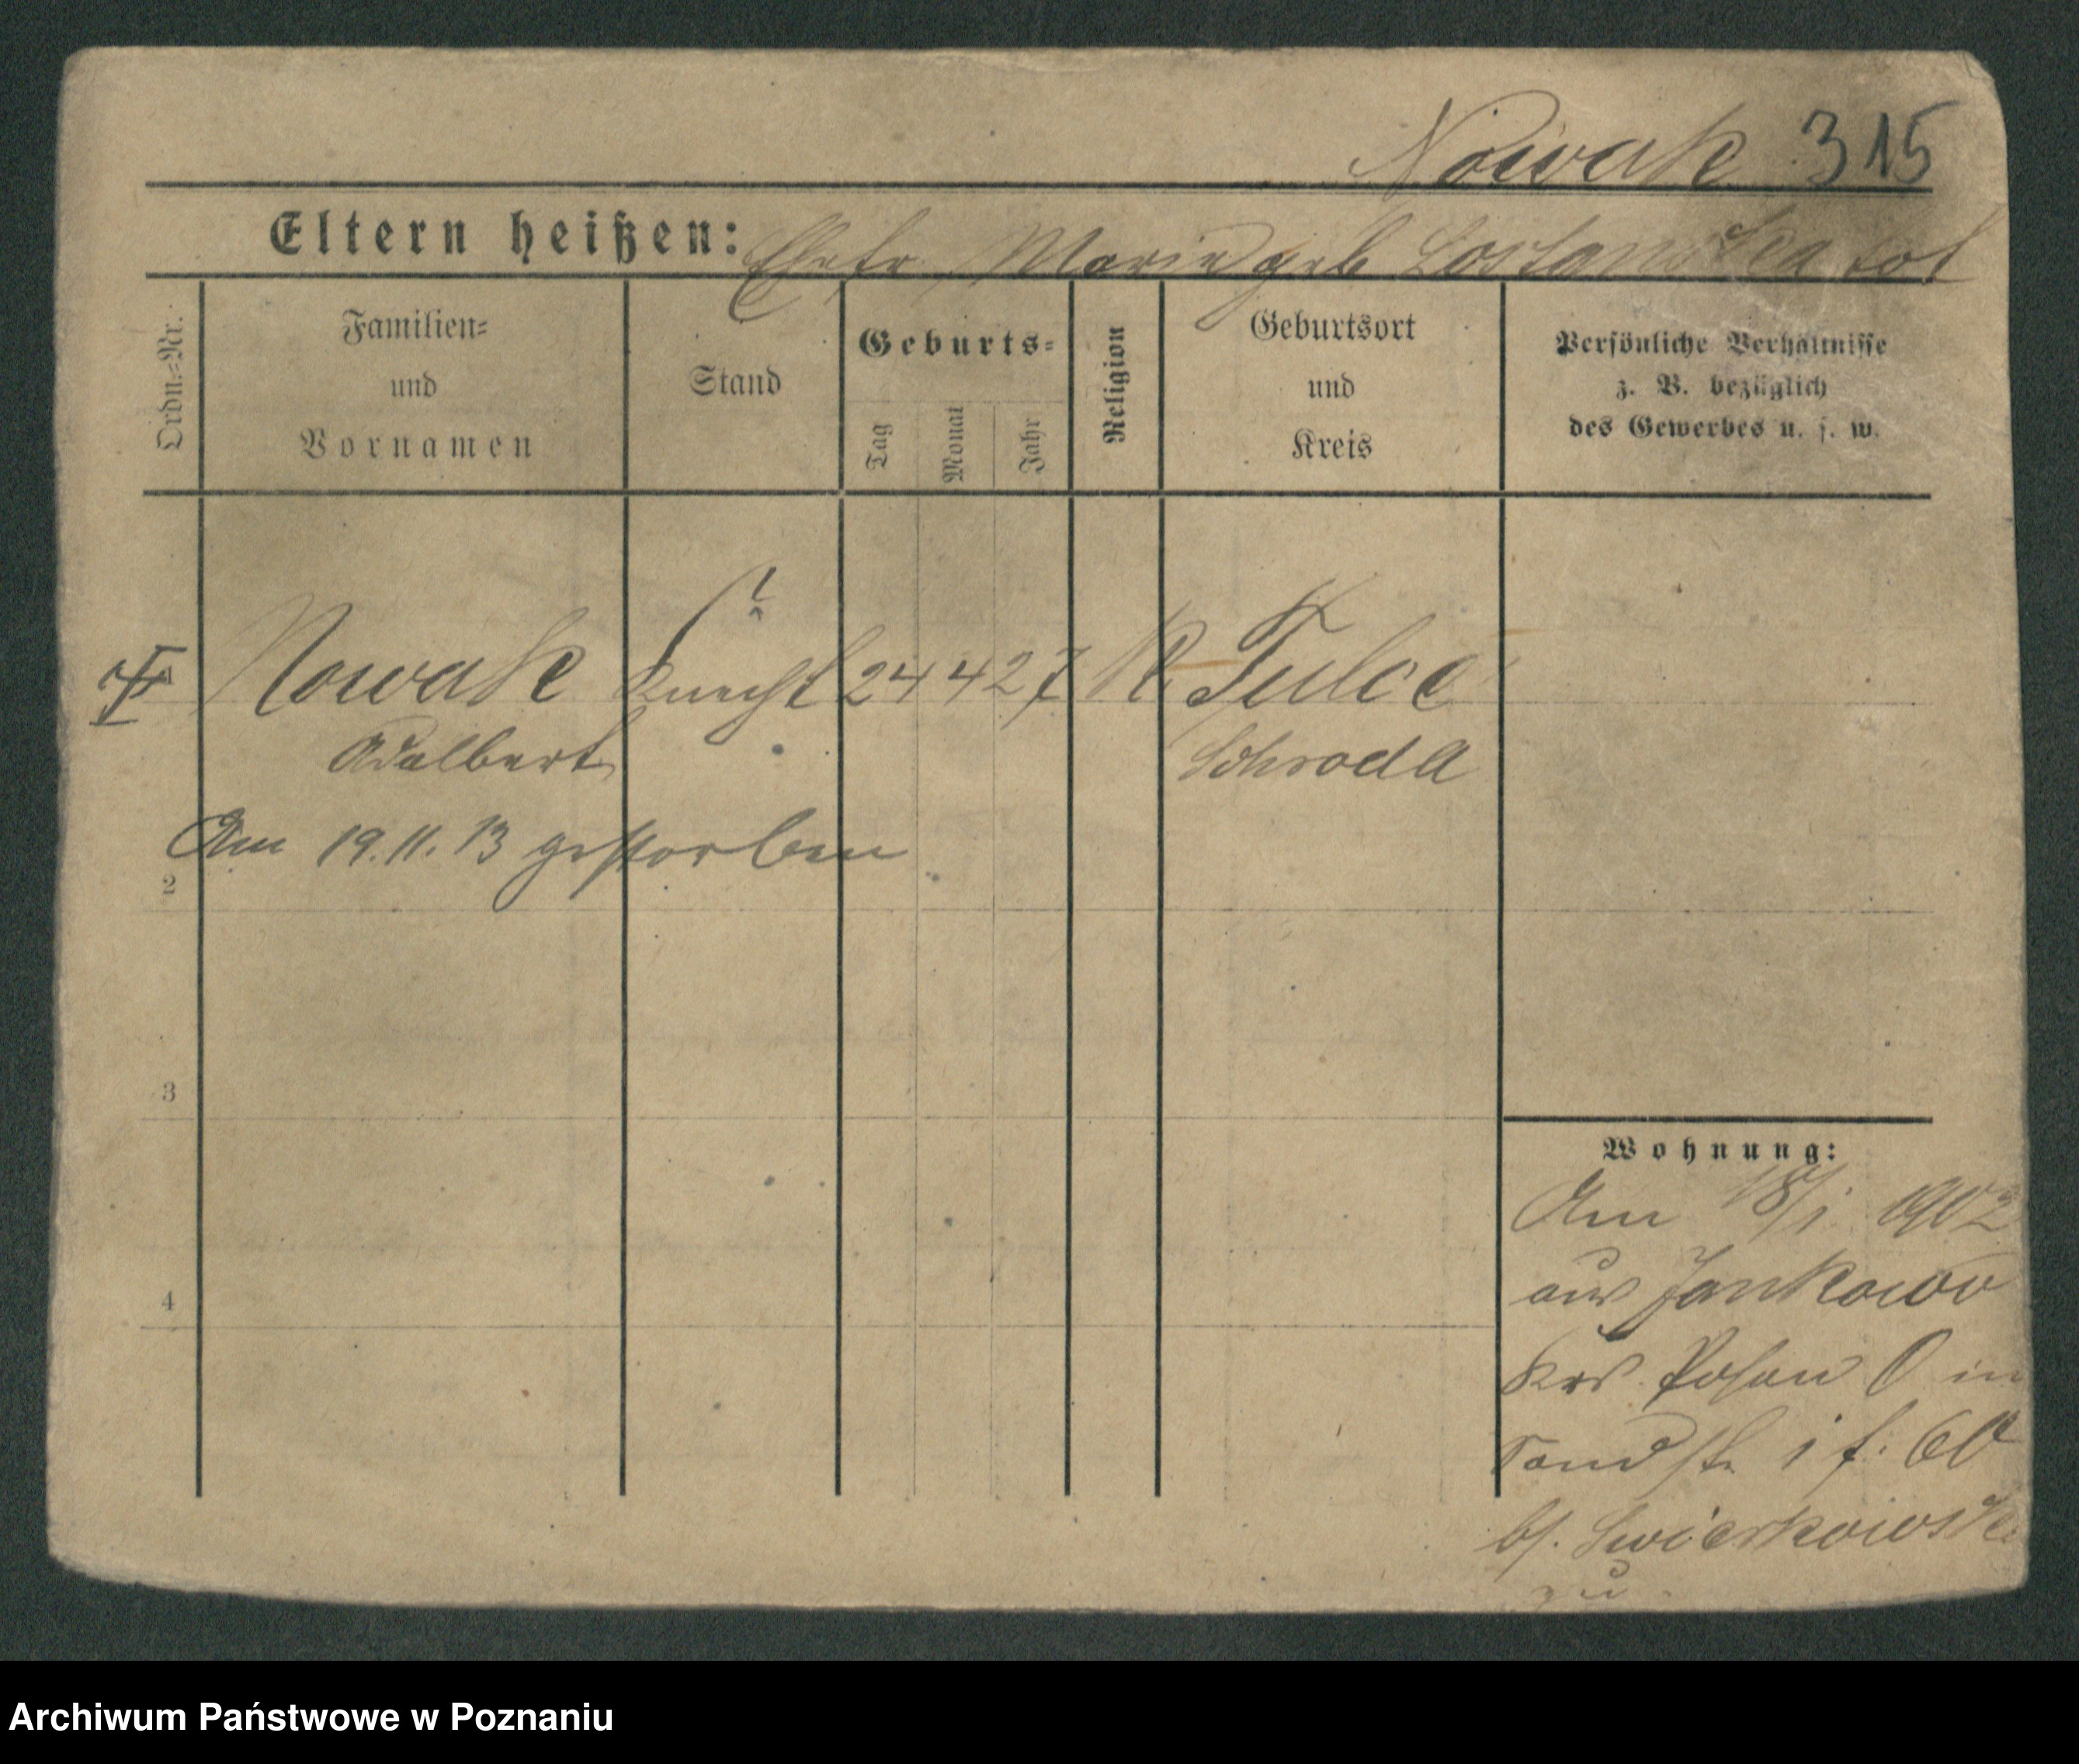 Nowak 315
Eltern heißen: Ehefr Marie geb tot
Ordn.-Nr.
Familien-
und
Vornamen
Stand
Geburts-
Tag
Monat
Jahr
Religion
Geburtsort
und
Kreis
Persönliche Verhältnisse
z. B. bezüglich
des Gewerbes u. s. w.
Nowak Knecht 24 4 27 K Tulce
Adalbert Schroda
Am 19. 11. 13 gestorben
2
3
4
Wohnung:
Am 18/1. 1902
aus Jankowo
Krs. Posen O in
Sandstr. 1 f.
bf. Swierkowski
zu
Archiwum Państwowe w Poznaniu